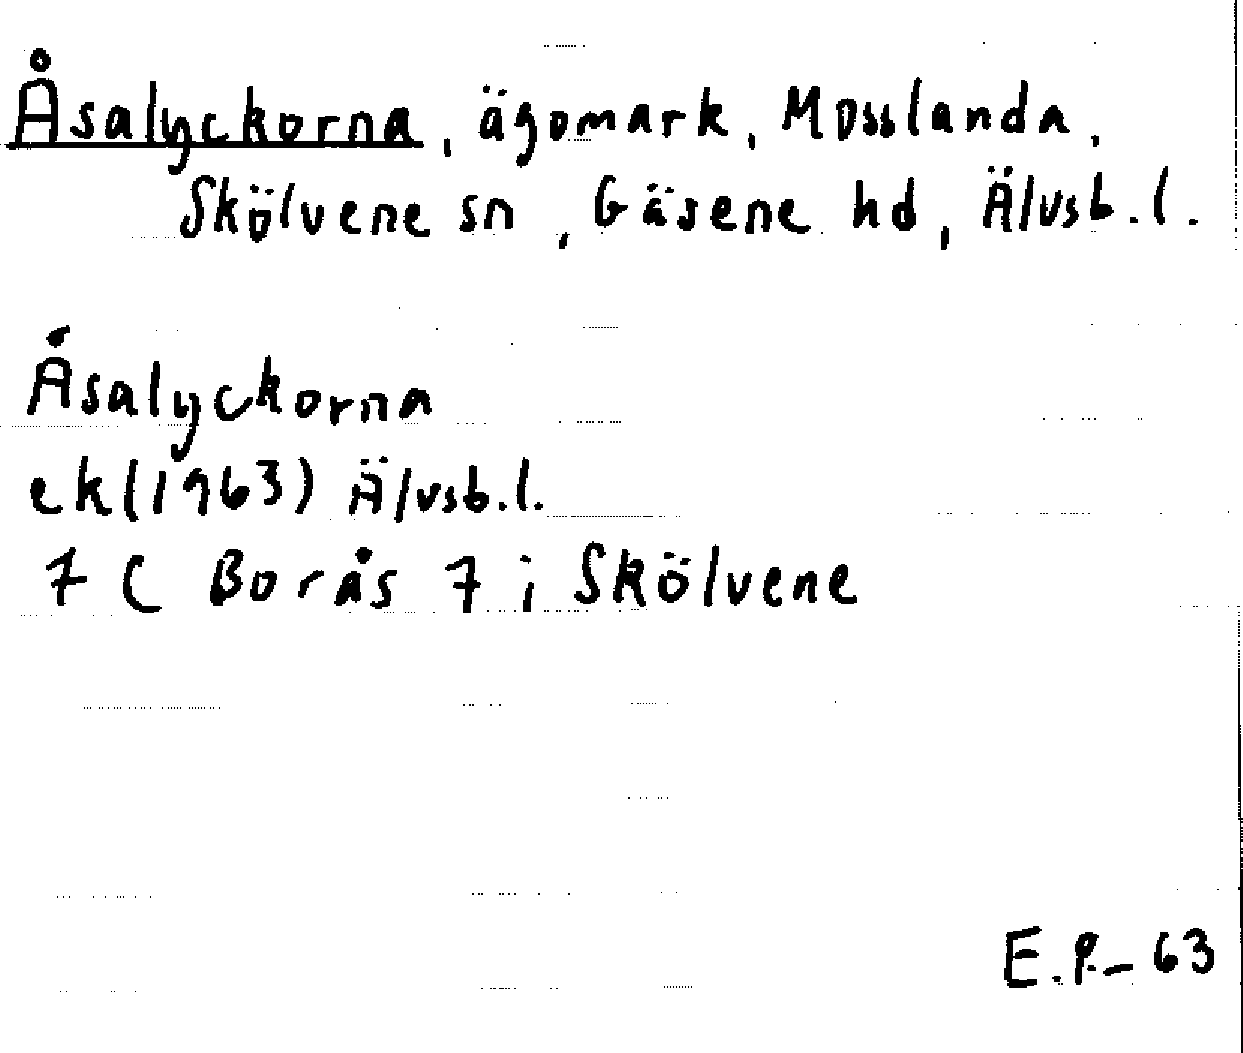 Åsalyckorna, ägomark, Mosslanda,
Skölvene sn, Gäsene hd, Älvsb. l.
Åsalyckorna
ek (1963) Älvsb. l.
7 C Borås 7 i Skölvene
E.P. - 63